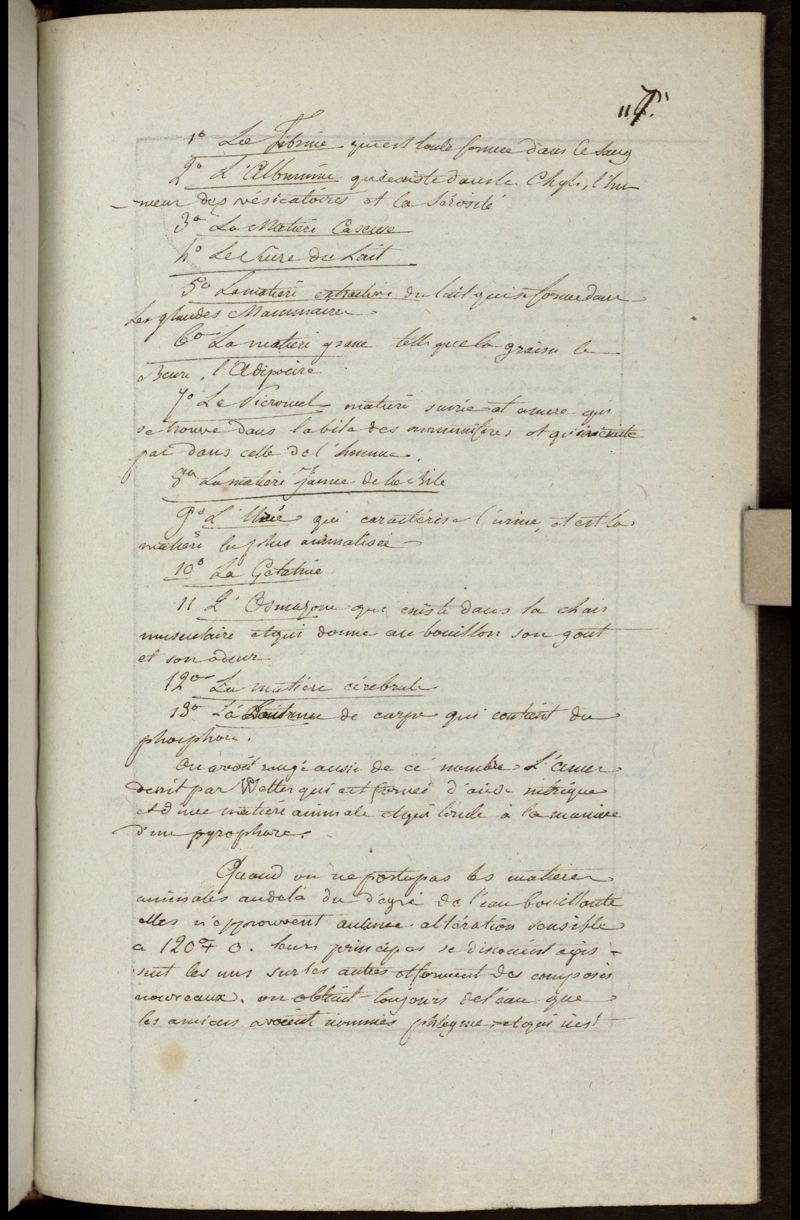 117.
1° La fibrine qui est toute formee dans le Sang
2° L'Albumine qui existe dans le Chyle, l'hu
-meur des vésicatoires et la Sérosité
3° La Matiere Caseuse
4° Le Sucre du Lait
5° La matiere extractive du lait qui se forme dans
les glandes Mammaires
6° La matiere grasse telle que la graisse le
Beure, l'Adipocire
7° Le Picromel matiere sucrée et amere qui
se trouve dans la bile des mammiferes et qui n'existe
pas dans celle de l'homme.
8° La matiere jaune de la Bile
9° L'Urée qui caractérise l'urine, et est la
matiere la plus animalisée
10° La Gelatine
11 L'Osmazome qui existe dans la chair
musculaire et qui donne au bouillon son gout
et son odeur
12° La matiere cérébrale
13° La laitence de carpe qui contient du
phosphore.
On avoit rangé aussi de ce nombre L'amer
decrit par Welter qui est formé d'acide nitrique
et d'une matiere animale et qui brule à la maniere
d'un pyrophore.
Quand on ne porte pas les matieres
animales audelà du dégré de l'eau bouillante
elles n'epprouvent aucune altération sensible
a 120 + 0. leurs principes se dissocient agis -
sent les uns sur les autres et forment des composés
nouveaux. on obtient toujours de l'eau que
les anciens avoient nommés phlegme et qui n'est